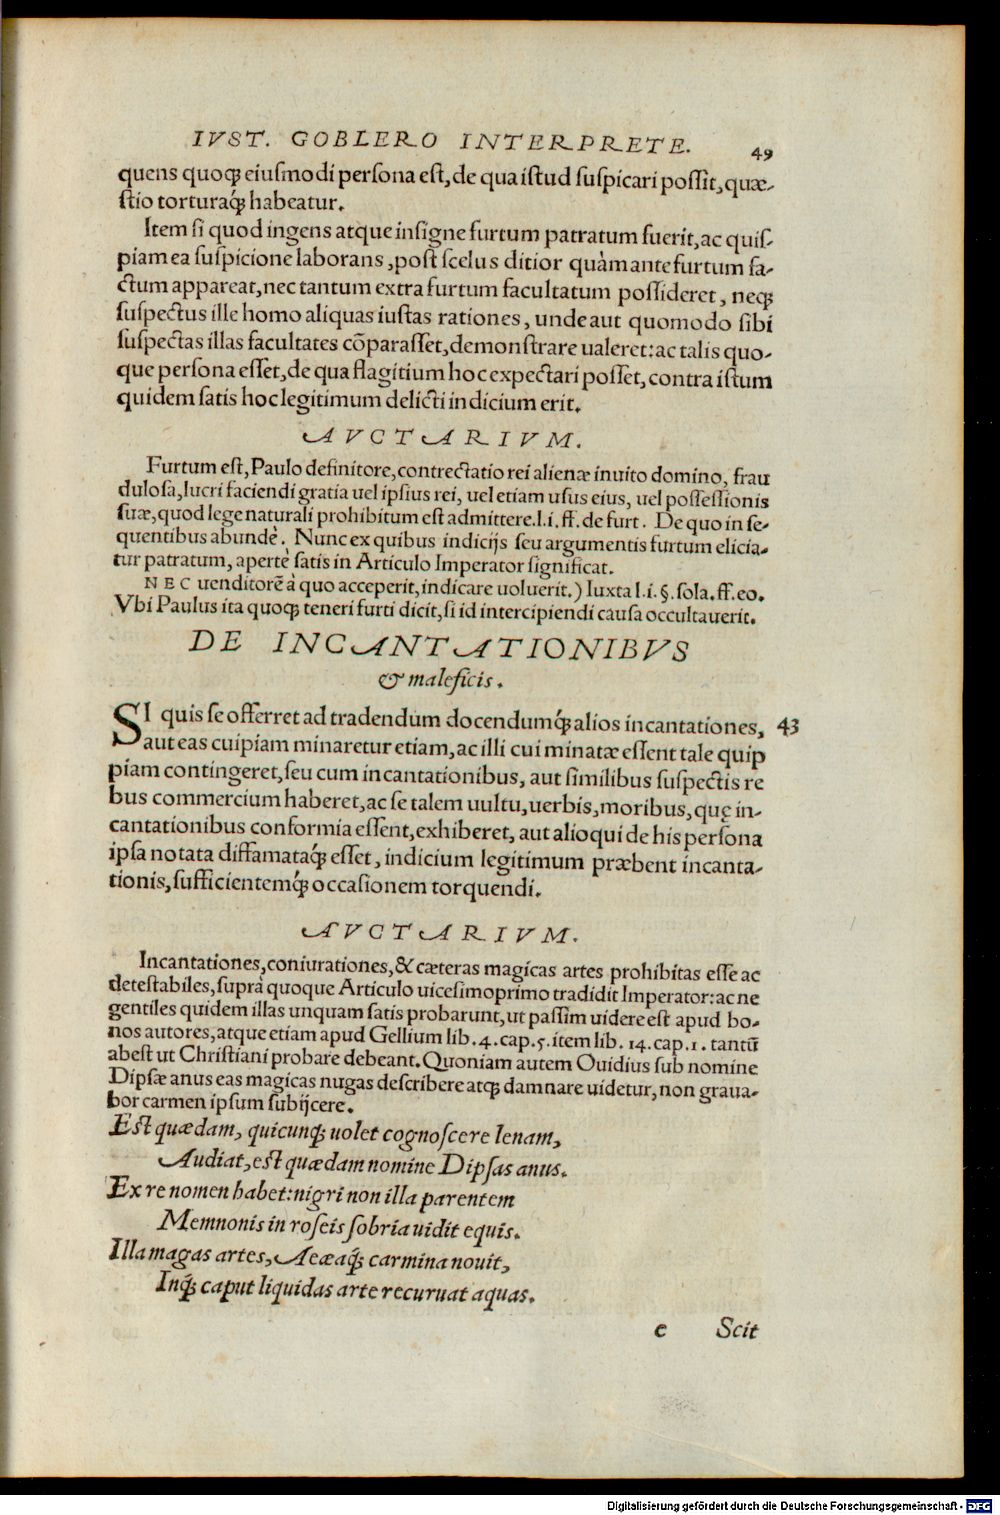 IVST. GOBLERO INTERPRETE. 49
quens quoq; eiusmodi persona est, de qua istud suspicari possit, quæ-
stio torturaq́; habeatur.
Item si quod ingens atque insigne furtum patratum fuerit, ac quis-
piam ea suspicione laborans, post scelus ditior quàm ante furtum fa-
ctum appareat, nec tantum extra furtum facultatum possideret, neq;
suspectus ille homo aliquas iustas rationes, unde aut quomodo sibi
suspectas illas facultates cõparasset, demonstrare ualeret: ac talis quo-
que persona esset, de qua flagitium hoc expectari posset, contra istum
quidem satis hoc legitimum delicti indicium erit.
AVCTARIVM.
Furtum est, Paulo definitore, contrectatio rei alienæ inuito domino, frau
dulosa, lucri faciendi gratia uel ipsius rei, uel etiam usus eius, uel possessionis
suæ, quod lege naturali prohibitum est admittere. l. i. ff. de furt. De quo in se-
quentibus abundè. Nunc ex quibus indicijs seu argumentis furtum elicia-
tur patratum, apertè satis in Articulo Imperator significat.
NEC uenditorẽ à quo acceperit, indicare uoluerit.) Iuxta l. i. §. sola. ff. eo.
Vbi Paulus ita quoq; teneri furti dicit, si id intercipiendi causa occultauerit.
DE INCANTATIONIBVS
& maleficis.
SI quis se offerret ad tradendum docendumq́; alios incantationes, 43
aut eas cuipiam minaretur etiam, ac illi cui minatæ essent tale quip
piam contingeret, seu cum incantationibus, aut similibus suspectis re
bus commercium haberet, ac se talem uultu, uerbis, moribus, quę in-
cantationibus conformia essent, exhiberet, aut alioqui de his persona
ipsa notata diffamataq́; esset, indicium legitimum præbent incanta-
tionis, sufficientemq́; occasionem torquendi.
AVCTARIVM.
Incantationes, coniurationes, & cæteras magicas artes prohibitas esse ac
detestabiles, suprà quoque Articulo uicesimoprimo tradidit Imperator: ac ne
gentiles quidem illas unquam satis probarunt, ut passim uidere est apud bo-
nos autores, atque etiam apud Gellium lib. 4. cap. 5. item lib. 14. cap. 1. tantũ
abest ut Christiani probare debeant. Quoniam autem Ouidius sub nomine
Dipsæ anus eas magicas nugas describere atq; damnare uidetur, non graua-
bor carmen ipsum subijcere.
Est quædam, quicunq; uolet cognoscere lenam,
Audiat, est quædam nomine Dipsas anus.
Ex re nomen habet: nigri non illa parentem
Memnonis in roseis sobria uidit equis.
Illa magas artes, Aeæaq́; carmina nouit,
Inq́; caput liquidas arte recuruat aquas.
e Scit
Digitalisierung gefördert durch die Deutsche Forschungsgemeinschaft - DFG